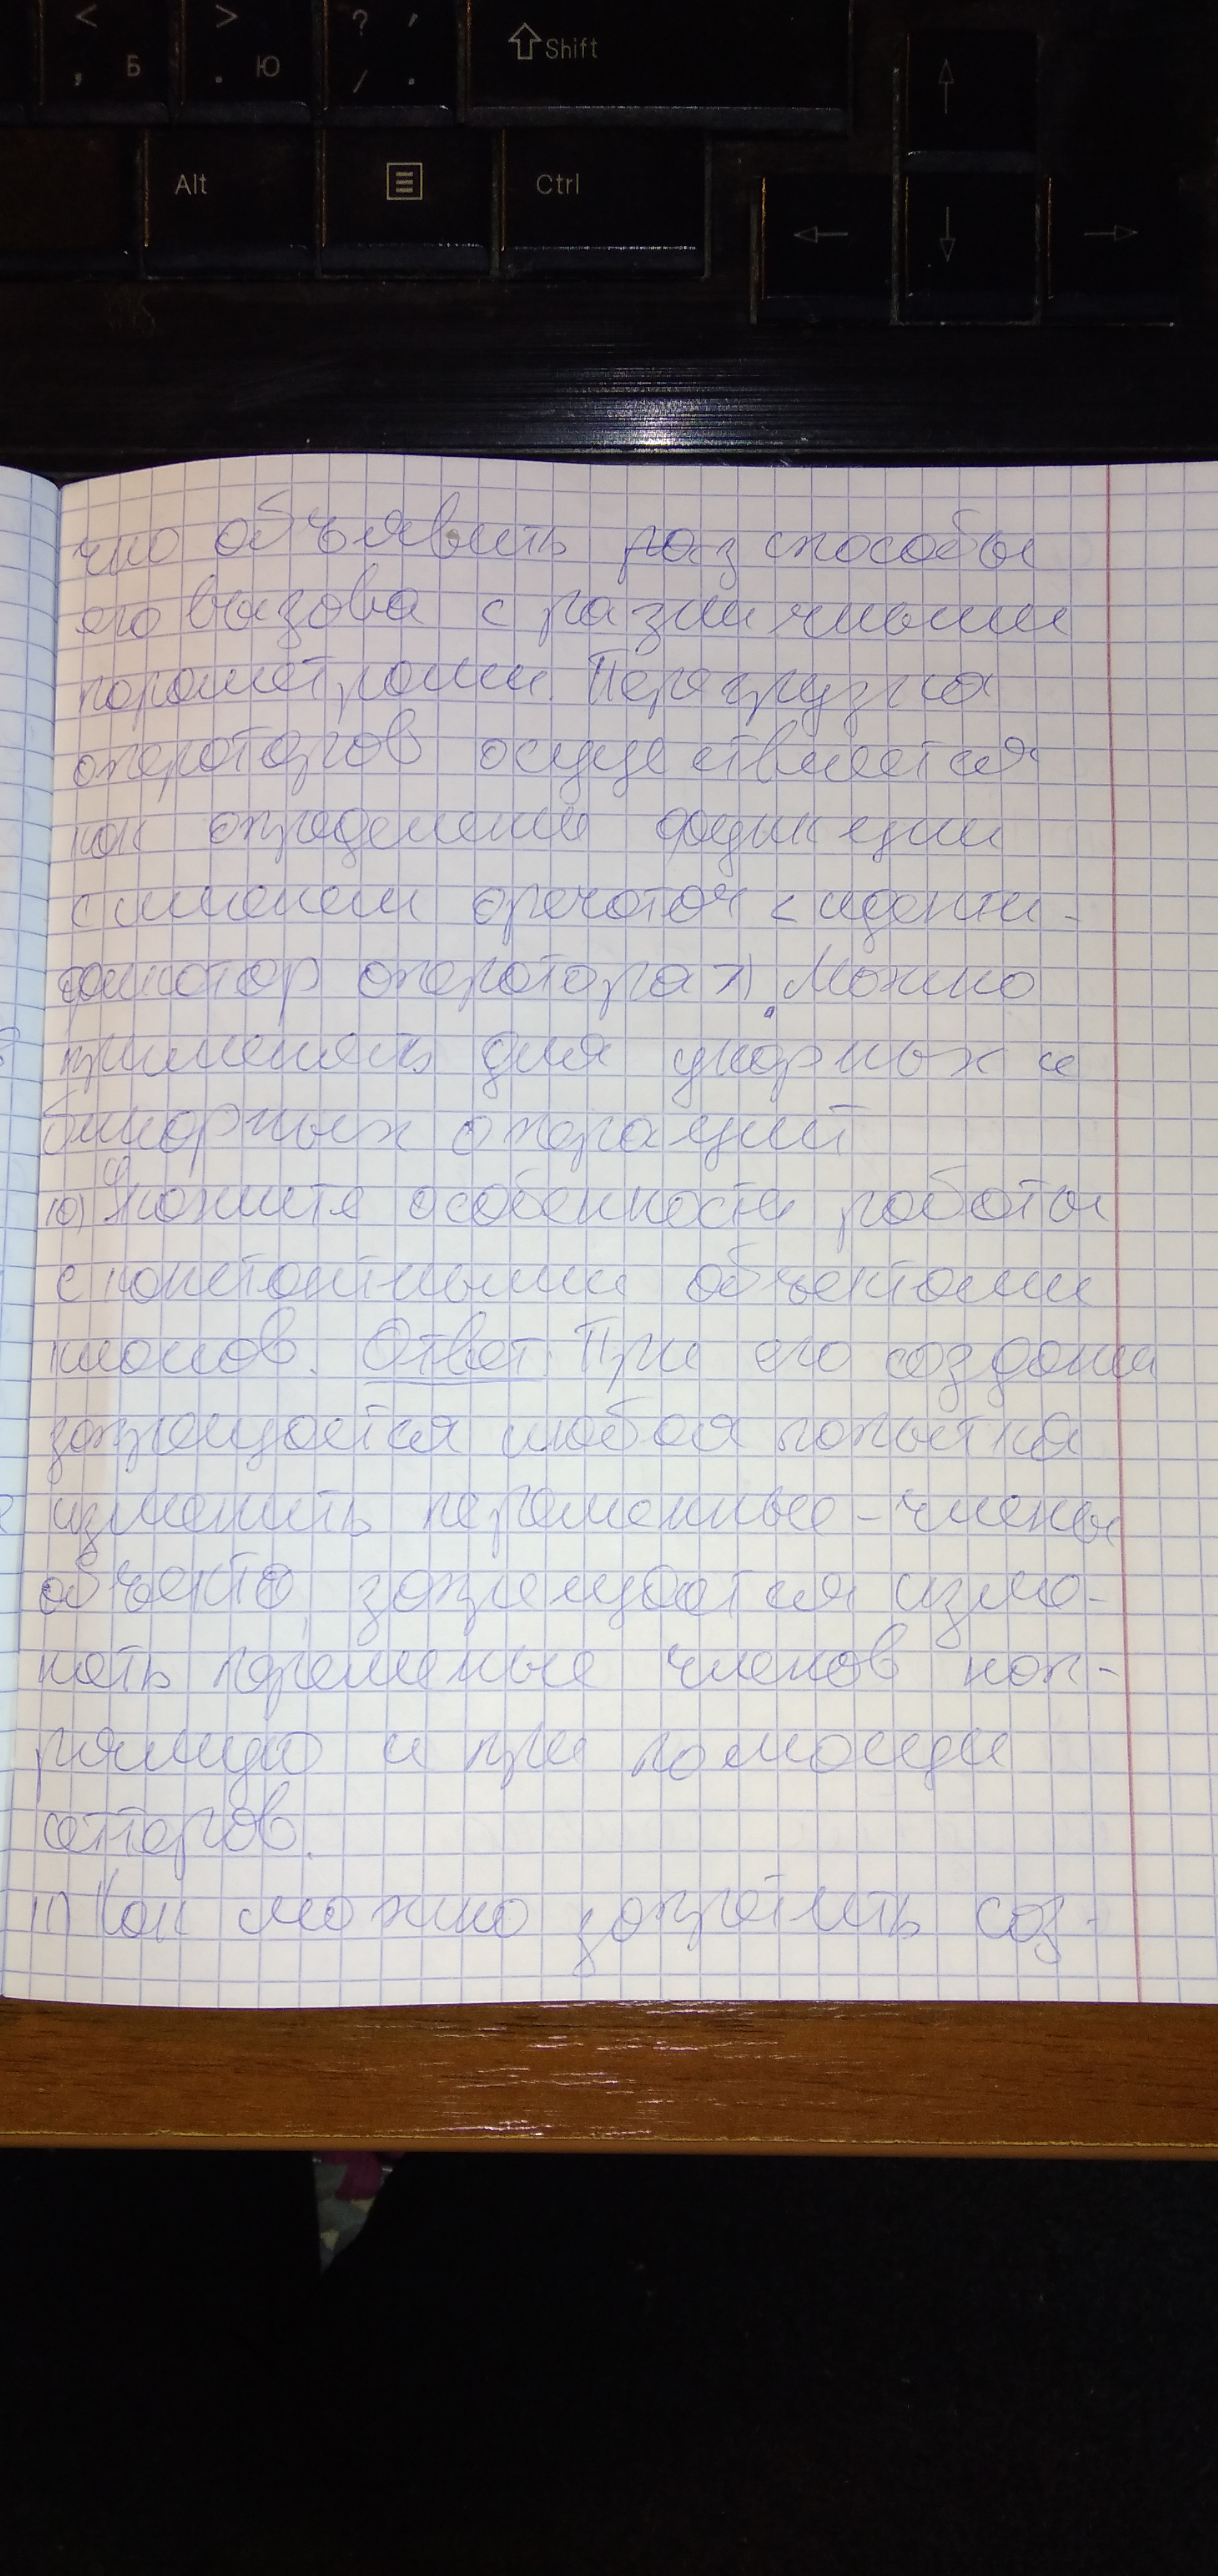 < > ? ,
, Б . Ю / . Shift
Alt Ctrl
что объявить раз способы
его вызова с различными
параметрами. Перегрузка
операторов осуществляется
как определение функции
с именем <иденти-
фикатор оператора>). Можно
применять для унарных и
бинарных операций
10) Укажите особенности работы
с константными объектами
классов. Ответ: При его создании
запрещается любая попытка
изменить переменные-члены
объекта, запрещается изме-
нять переменые членов нап-
рямую и при помощи
сеттеров.
11) Как можно запретить соз-